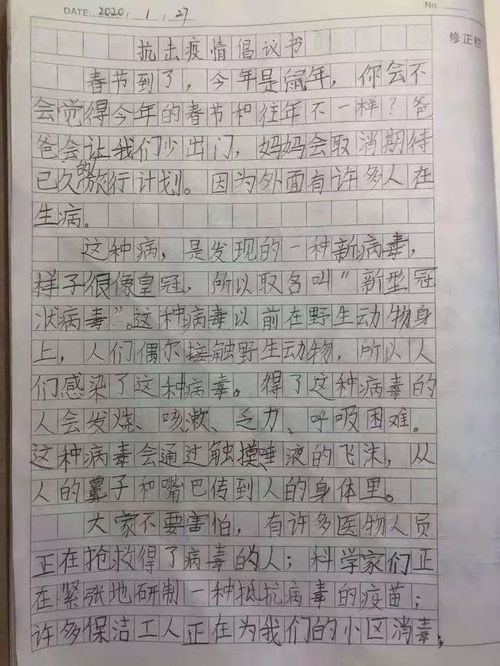 DATE: 2020, 1, 27
No
修正栏
抗击疫情倡议书
春节到了，今年是鼠年，你会不
会觉得今年的春节和往年不一样？爸
爸会让我们少出门，妈妈会取消期待
已久的旅行计划。因为外面有许多人在
生病。
这种病，是发现的一种新病毒，
样子很像皇冠，所以取名叫“新型冠
状病毒”。这种病毒以前在野生动物身
上，人们偶尔接触野生动物，所以人
们感染了这种病毒。得了这种病毒的
人会发烧、咳嗽、乏力、呼吸困难。
这种病毒会通过触摸唾液的飞沫，从
人的鼻子和嘴巴传到人的身体里。
大家不要害怕，有许多医物人员
正在抢救得了病毒的人；科学家们正
在紧张地研制一种抵抗病毒的疫苗；
许多保洁工人正在为我们的小区消毒；